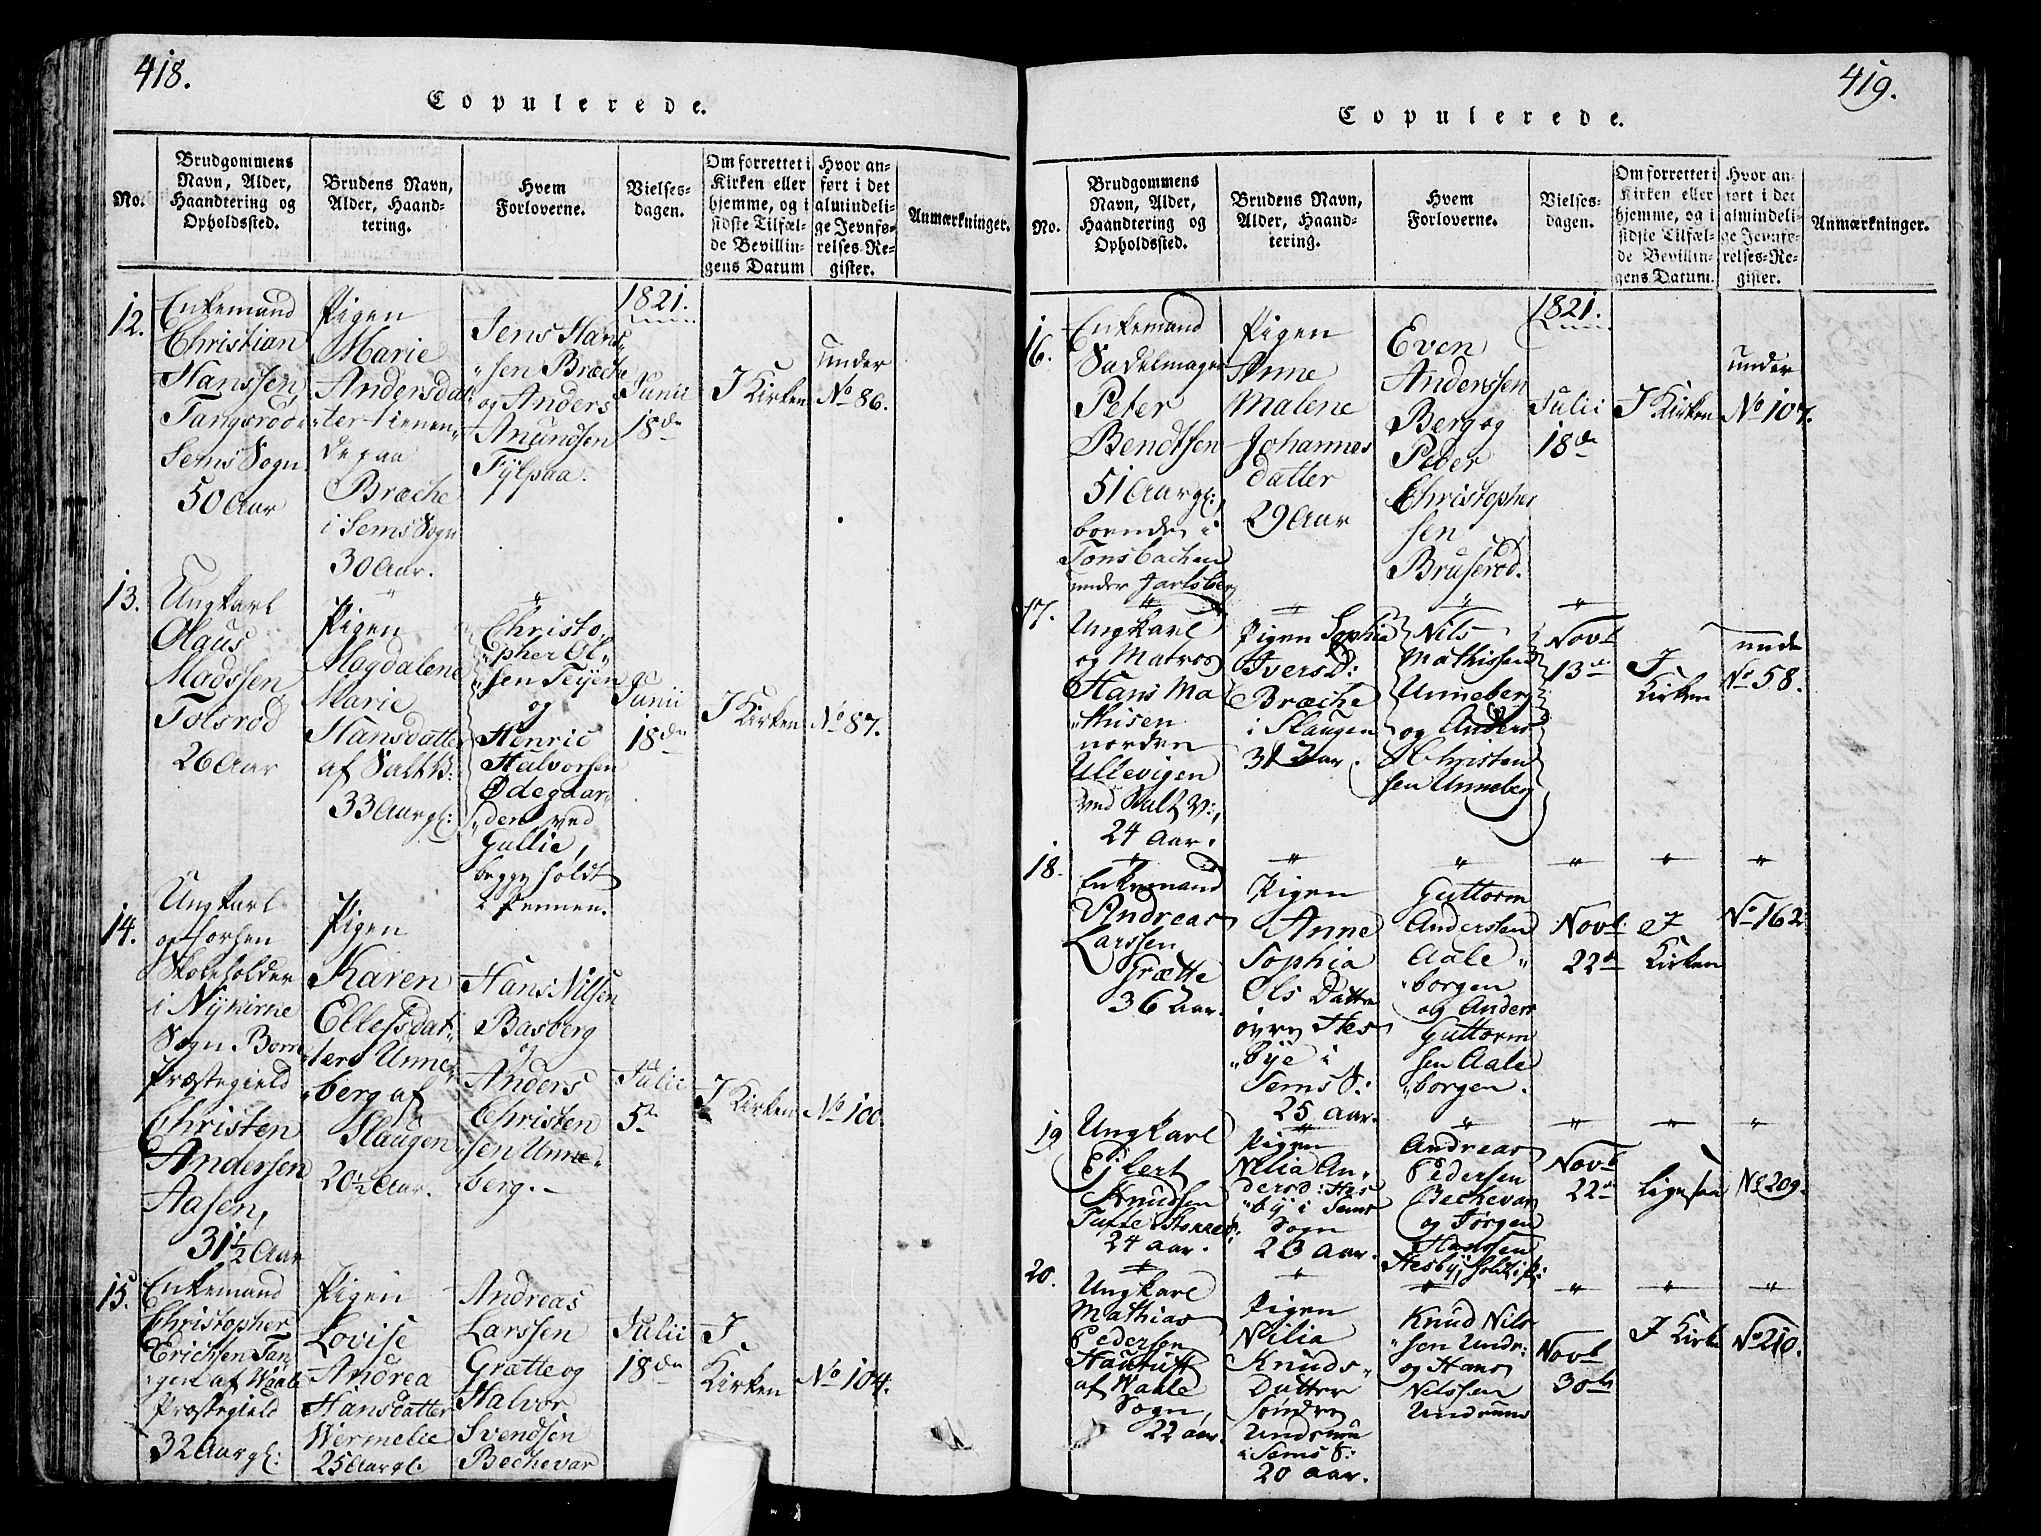 418.
Copulerede.
No.
Brudgommens
Navn, Alder,
Haandtering og
Opholdssted.
Brudens Navn,
Alder, Haand-
tering.
Hvem
Forloverne.
Vielses-
dagen.
Om forrettet i
Kirken eller
hjemme, og i
sidste Tilfæl-
de Bevillin-
gens Datum
Hvor an-
ført i det
almindeli-
ge Jevnfø-
relses-Re-
gister.
Anmærkninger.
12.
Enkemand
Christian
Hanssen,
Tangsrød
Sems Sogn
50 Aar
Pigen
Marie
Andersdat
ter tienen„
de paa
Bræche
i Sems Sogn
30 Aar.
Jens Hans
„sen Bræche
og Anders
Anundsen
Fylpaa.
1821.
Junii
18de
I Kirken
under
No 86.
13.
Ungkarl
Olaus
Madssen
Tolsrød
26 Aar
Pigen
Magdalene
Marie
Hansdatter
af Vallø:
33 Aar gl:
Christo„
„pher Ol„
„sen Teijen
og
Henric
Halvorsen
Ødegaar„
„den ved
Gullie,
begge holdt
i Pennen.
Junii
18de
I Kirken
No 87.
14.
Ungkarl
og forhen
Skoleholder
i Nykirke
Sogn Borre
Præstegield
Christen
Andersen
Aasen,
31½ Aar
Pigen
Karen
Ellefsdat„
„ter Unne„
„berg af
Slaugen
20½ Aar.
Hans Nilsen
Basberg
og
Anders
Christen
„sen Unne„
berg.
Julii
5te
I Kirken
No 100
15.
Enkemand
Christopher
Erichsen Tan„
„gen af Waale
Præstegield
32 Aar gl:
Pigen
Lovise
Andrea
Hansdatter
Wermelie
25 Aar gl:
Andreas
Larssen
Grætte og
Halvor
Svendsen
Bechevar
Julii
18de
I
Kirken
No 104.
419.
Copulerede.
No.
Brudgommens
Navn, Alder,
Haandtering og
Opholdssted.
Brudens Navn,
Alder, Haand-
tering.
Hvem
Forloverne.
Vielses-
dagen.
Om forrettet i
Kirken eller
hjemme, og i
sidste Tilfæl-
de Bevillin-
gens Datum.
Hvor an-
ført i det
almindeli-
ge Jevnfø-
relses-Re-
gister.
Anmærkninger.
16.
Enkemand
Sadelmager
Peter
Bendtsen
51 Aar gl:,
boende i
Tonsbachen
under Jarlsberg
Pigen
Anne
Malene
Johannes
datter
29 Aar
Even
Anderssen
Berg og
Peder
Christopher
sen
Bruserød.
1821.
Julii
18de
I Kirken
under
No 107.
17.
Ungkarl
og Matros
Hans Ma
„thisen
norden
Ullevigen
ved Vallø:,
24 Aar.
Pigen Sophia
Ivers D:
Bræche
i Slaugen
31 Aar.
Nils
Mathissen
Unneberg
og Anders
Christen
sen Unneberg
Novb
13de
I
Kirken
unde
No 58.
18.
Enkemand
Andreas
Larssen
Grætte
36 Aar.
Pigen
Anne
Sophia
Ols Datter
øvre Hes
„bye i
Sems S:
25 Aar.
Guttorm
Anderssen
Aale„
„borgen
og Anders
Guttorm
sen Aale
„borgen.
Novb:
22de
I
Kirken
No 162.
19
Ungkarl
Ejlert
Knudsen
24 Aar.
Pigen
Nilia An„
dersd: Hes
„by i Sems
Sogn
23 Aar.
Andreas
Pedersen
Bechevar
og Jørgen
Hanssen
Hesby, holdt i P:
Novb
22de
Ligesaa
No 209.
20.
Ungkarl
Mathias
Pedersen
af Waale
Sogn,
22 aar.
Pigen
Nilia
Knuds„
Datter
søndre
Undrum
i Sems S:
20 aar.
Knud Nils
„sen Undr:
og Hans
Nilssen
Undrum
Novb
30te
I Kirke
No 210.